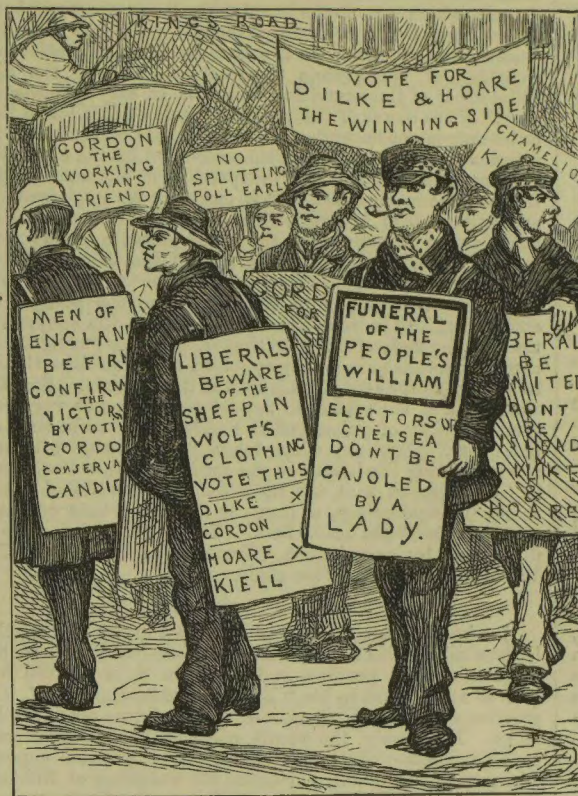 KINGS ROAD
VOTE FOR
DILKE & HOARE
THE WINNING SIDE
GORDON
THE
WORKING
MAN'S
FRIEND
NO
SPLITTING
POLL EARL
CHAMELIO
K
MEN OF
ENGLAN
BE FIR
CONFIRM
THE
VICTOR
BY VOTI
GORDO
CONSERVA
CANDID
LIBERALS
BEWARE
OF THE
SHEEP IN
WOLF'S
CLOTHING
VOTE THUS
DILKE X
GORDON
HOARE X
KIELL
GORD
FOR
FUNERAL
OF THE
PEOPLE'S
WILLIAM
ELECTORS OF
CHELSEA
DONT BE
CAJOLED
BY A
LADY.
BERAL
BE
NITE
DONT
BE
DILKE
&
HOARE